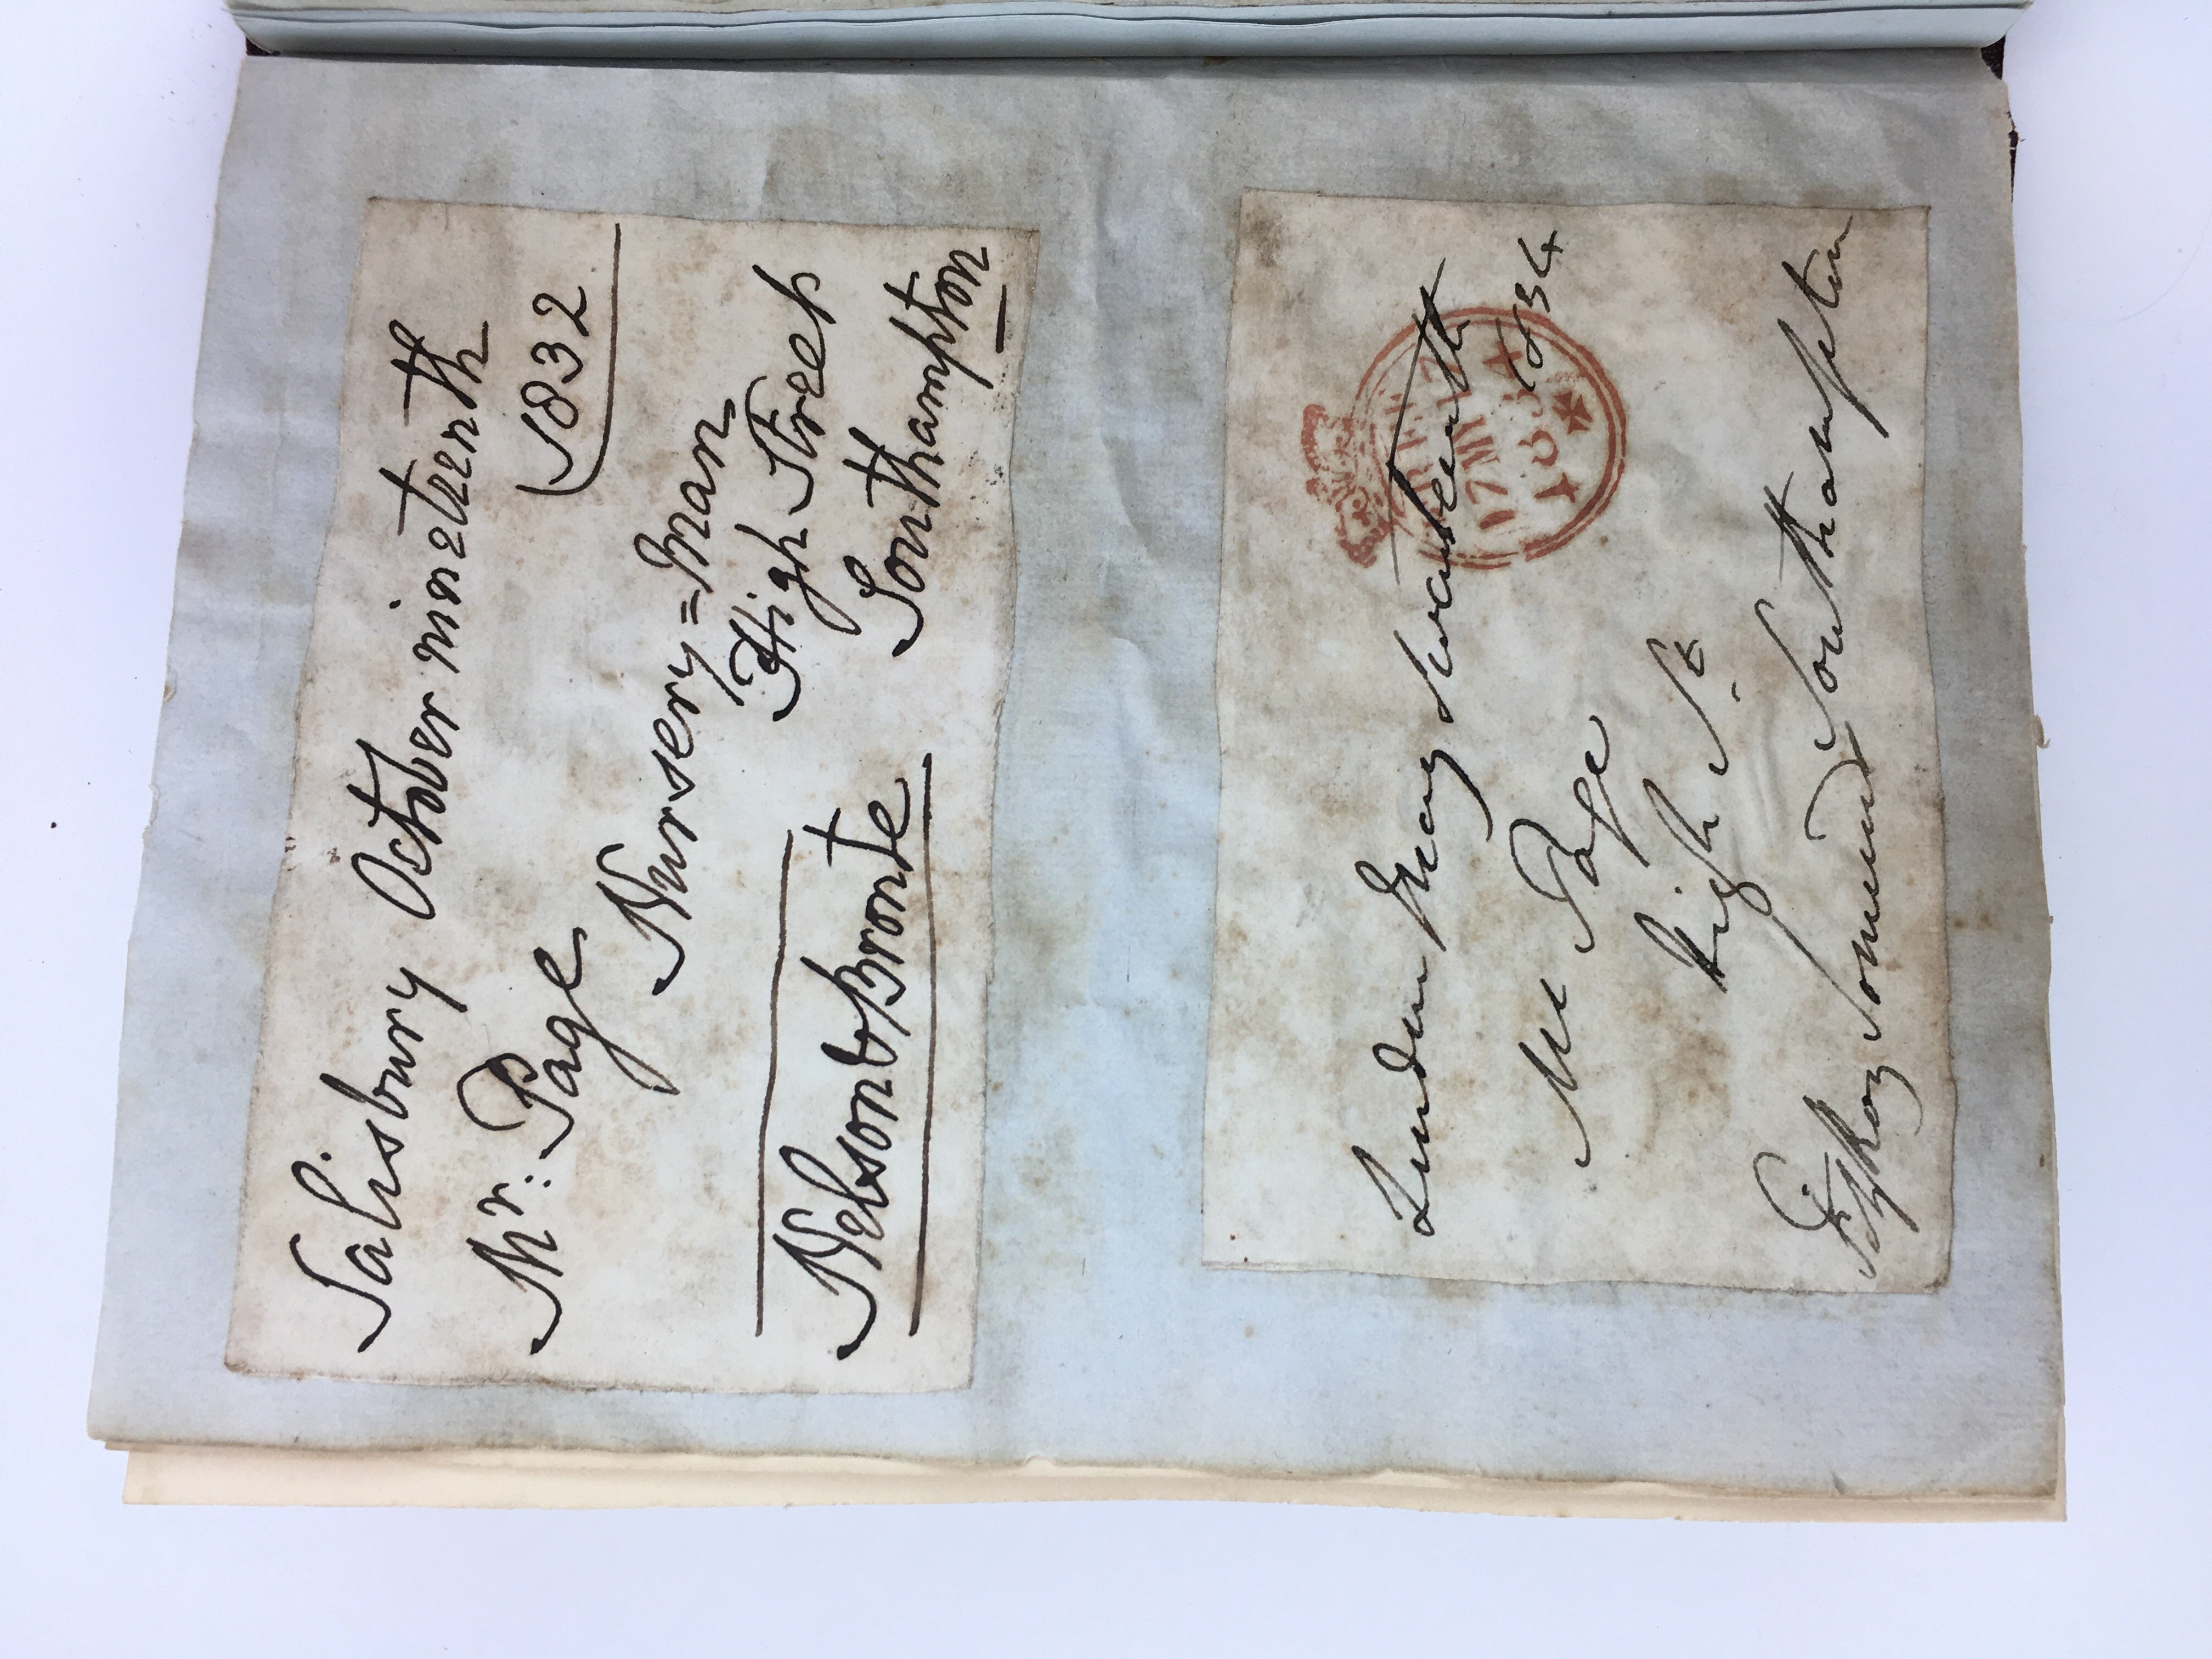 Salisbury October nineteenth
1832
Mr: Page
Nursery=Man
High Street
Southampton
Nelson & Bronte
London May Seventeenth
1834
Mr Page
high St
Southampton
Fitzroy Somerset
FREE
17 MY 17
1834